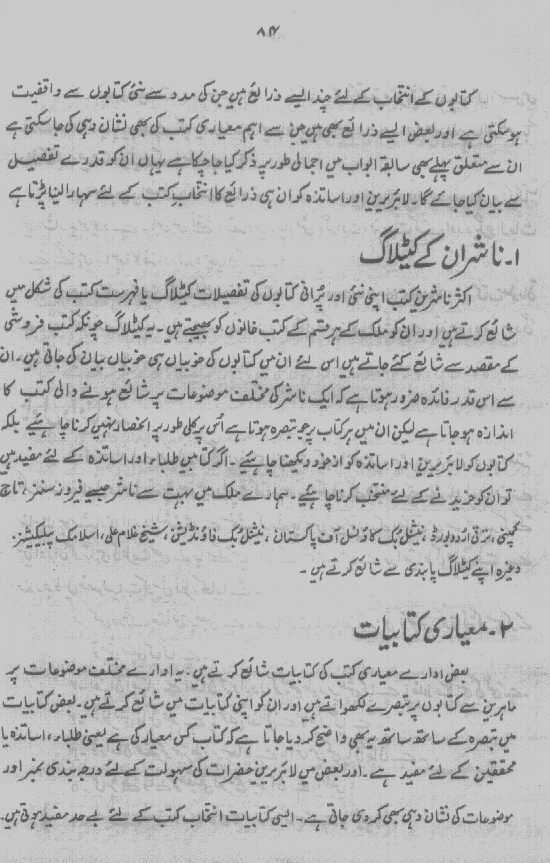 ۸۴
کتابوں کے انتخاب کے لئے چند ایسے ذرائع ہیں جن کی مدد سے نئی کتابوں سے واقفیت
ہو سکتی ہے اور بعض ایسے ذرائع بھی ہیں جن سے اہم معیاری کتب کی بھی نشان دہی کی جا سکتی ہے
ان سے متعلق پہلے بھی سابقہ ابواب میں اجمالی طور پر ذکر کیا جا چکا ہے یہاں ان کو قدرے تفصیل
سے بیان کیا جائے گا۔ لائبریرین اور اساتذہ کو ان ہی ذرائع کا انتخابِ کتب کے لئے سہارا لینا پڑتا ہے
۱۔ ناشران کے کیٹلاگ
اکثر ناشرین کتب اپنی نئی اور پرانی کتابوں کی تفصیلات کیٹلاگ یا فہرست کتب کی شکل میں
شائع کرتے ہیں اور ان کو ملک کے ہر قسم کے کتب خانوں کو بھیجتے ہیں۔ یہ کیٹلاگ چونکہ کتب فروشی
کے مقصد سے شائع کئے جاتے ہیں اس لئے ان میں کتابوں کی خوبیاں ہی خوبیاں بیان کی جاتی ہیں۔ ان
سے اس قدر فائدہ ضرور ہوتا ہے کہ ایک ناشر کی مختلف موضوعات پر شائع ہونے والی کتب کا
اندازہ ہو جاتا ہے لیکن ان میں ہر کتاب پر جو تبصرہ ہوتا ہے اُس پر کلی طور پر انحصار نہیں کرنا چاہئیے بلکہ
کتابوں کو لائبریرین اور اساتذہ کو از خود دیکھنا چاہئیے۔ اگر کتابیں طلباء اور اساتذہ کے لئے مفید ہیں
تو ان کو خریدنے کے لئے منتخب کرنا چاہئیے۔ ہمارے ملک میں بہت سے ناشر جیسے فیروز سنز، تاج
کمپنی، ترقی اردو بورڈ، نیشنل بک کاؤنسل آف پاکستان، نیشنل بک فاؤنڈیشن، شیخ غلام علی، اسلامک پبلیکیشنز
وغیرہ اپنے کیٹلاگ پابندی سے شائع کرتے ہیں۔
۲۔ معیاری کتابیات
بعض ادارے معیاری کتب کی کتابیات شائع کرتے ہیں۔ یہ ادارے مختلف موضوعات پر
ماہرین سے کتابوں پر تبصرے لکھواتے ہیں اور ان کو اپنی کتابیات میں شائع کرتے ہیں۔ بعض کتابیات
میں تبصرہ کے ساتھ ساتھ یہ بھی واضح کر دیا جاتا ہے کہ کتاب کس معیار کی ہے یعنی طلباء، اساتذہ یا
محققین کے لئے مفید ہے۔ اور بعض میں لائبریرین حضرات کی سہولت کے لئے درجہ بندی نمبر اور
موضوعات کی نشان دہی بھی کر دی جاتی ہے۔ ایسی کتابیات انتخاب کتب کے لئے بے حد مفید ہوتی ہیں۔